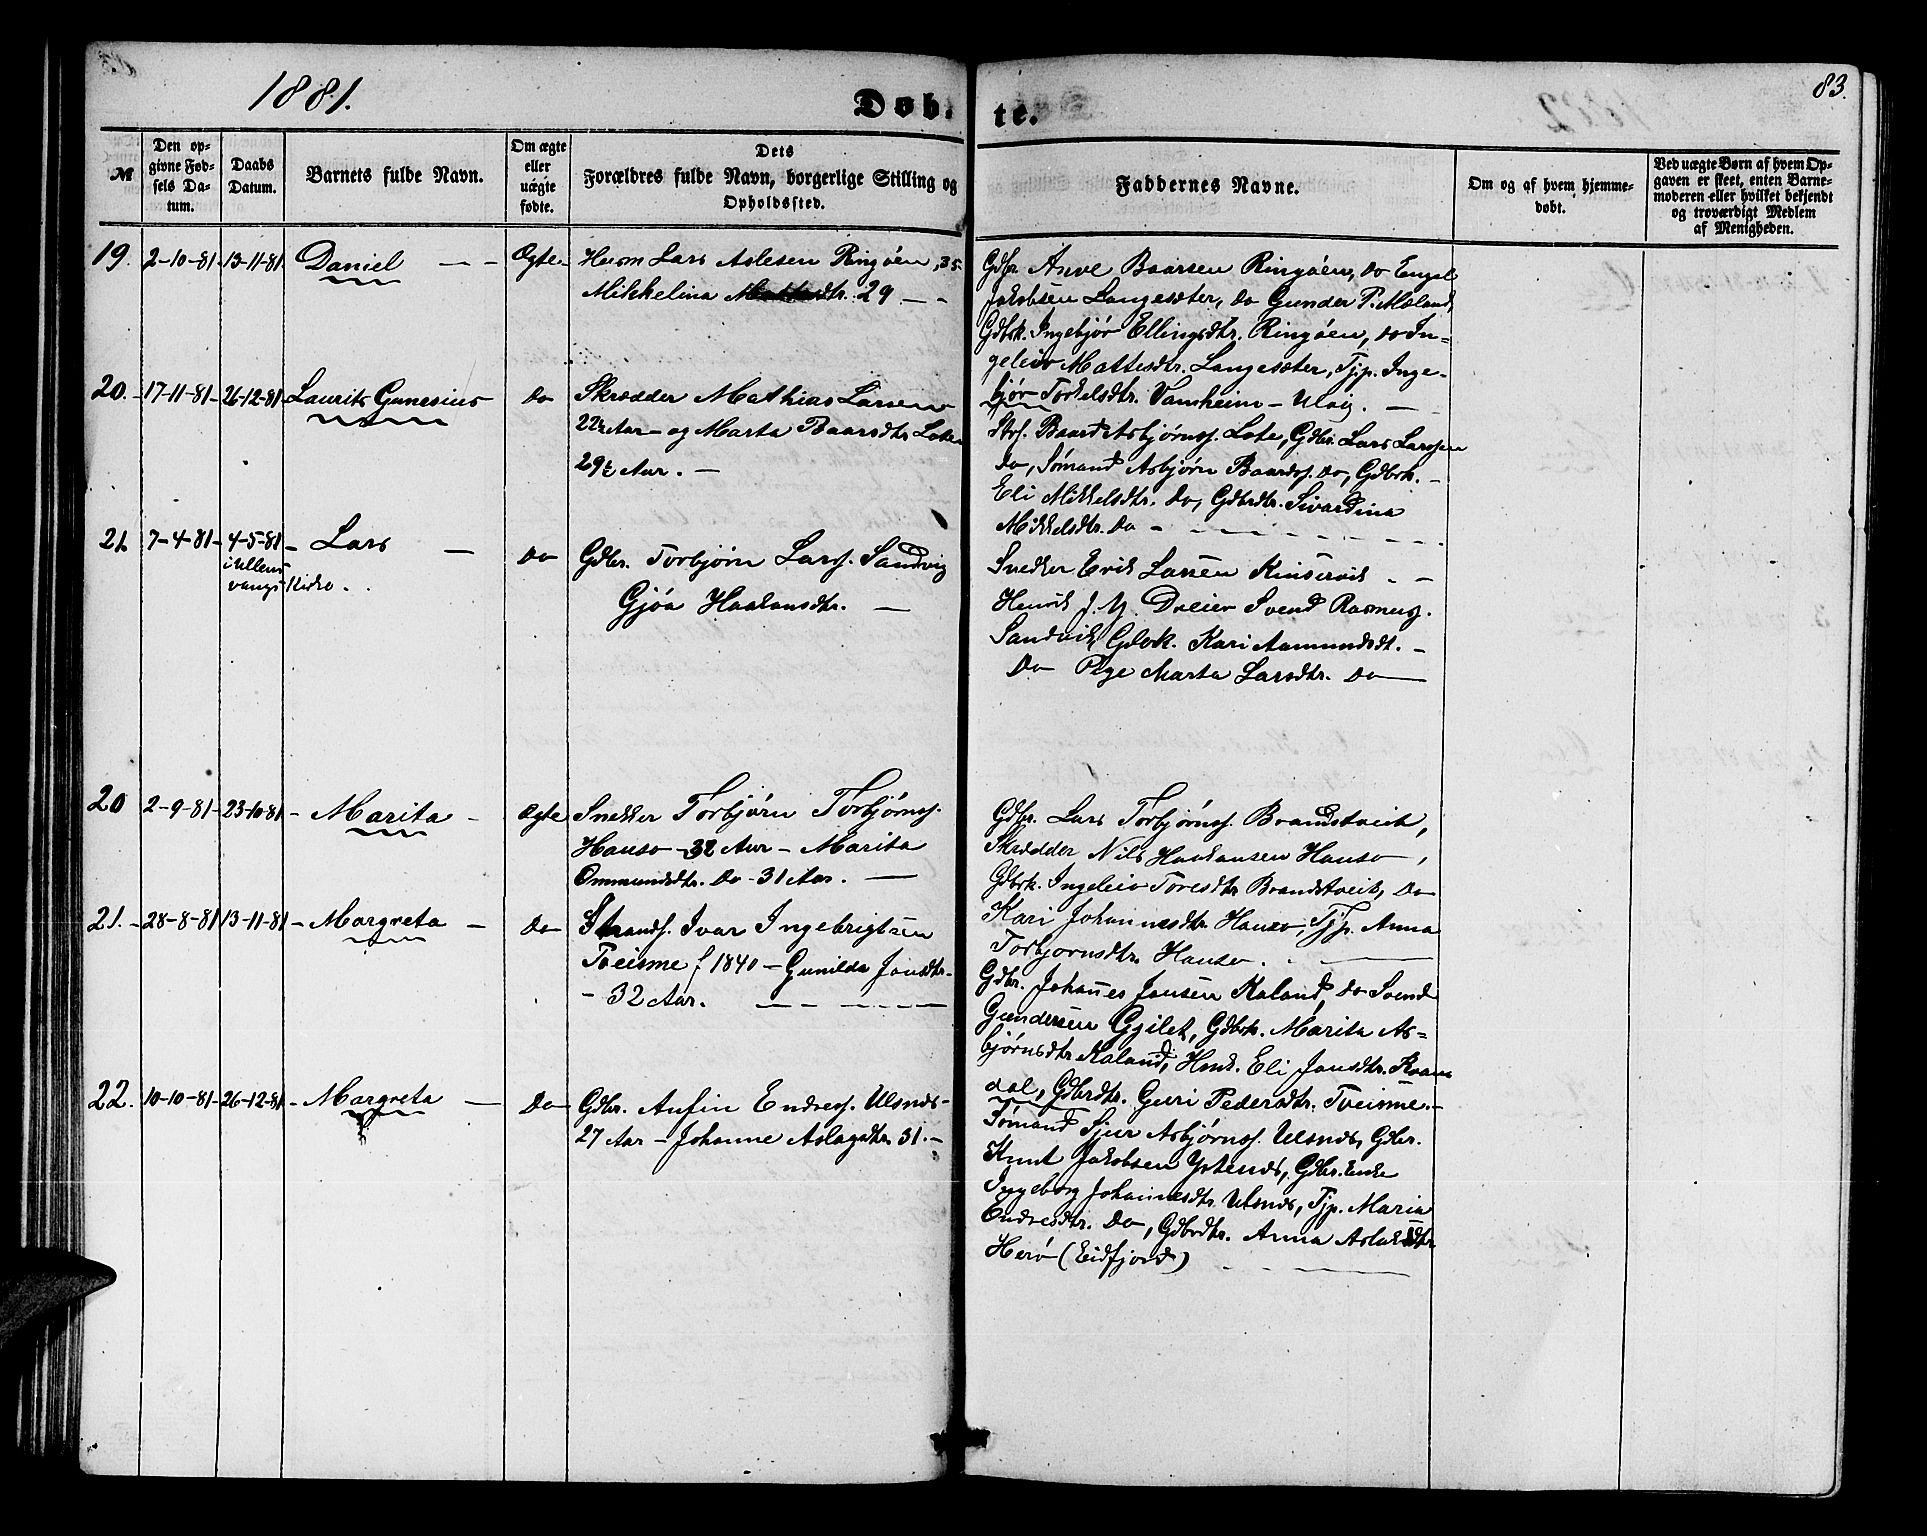 1881.
Døb-
te.
83.
№
Den op-
givne Fød-
sels Da-
tum.
Daabs
Datum.
Barnets fulde Navn.
Om ægte
eller
uægte
fødte.
Dets
Forældres fulde Navn, borgerlige Stilling og
Opholdssted.
Faddernes Navne.
Om og af hvem hjemme-
døbt.
Ved uægte Børn af hvem Op-
gaven er skeet, enten Barne-
moderen eller hvilket bekjendt
og troværdigt Medlem
af Menigheden.
19. 2-10-81. 13-11-81. Daniel Ægte
Husm Lars Aslesen Ringøen, 35
Mikkelina 29
Gdbr. Baarsen Ringøen, do Engel
Jakobsen Langesæter, do Gunder P. Mæland,
Gdbrk. Ingebjør Ellingsdtr. Ringøen, do In-
geleiv Mattesdtr. Langesæter, Tjp. Inge-
bjør Torkelsdtr. Vamheim - Ulvig.
20. 17-11-81 26-12-81 Laurits Gunesius Do
Skrædder Mathias Larsen
22½ Aar - og Marta Baarsdtr Lote
29½ Aar.
Strf. Baard Asbjørns. Lote, Gdbr. Lars Larssen
Do, Sømand Asbjørn Baards. Do, Gdbrk.
Eli Mikkelsdtr. Do, Gdbrdtr. Sivardina
Mikkelsdtr. Do
21. 7-4-81 4-5-81 Lars Do
i Ullens-
vangs Kirke.
Gdbr. Torbjørn Larss. Sandvig
Gjøa Haakansdtr.
Snedker Erik Larsen Kinservik
Henrik J. M. Dreier Svend Rasmuss.
Sandvik Gdbrk. Kari Aamundsdt.
Do Pige Marta Larsdtr. Do
20 2-9-81 23-10-81 Marita Ægte
Snekker Torbjørn Torbjørnss.
Hauso 32 Aar - Marita
Ommundsdtr. Do - 31 Aar.
Gdbr. Lars Torbjørnss. Brandstveit,
Skrædder Nils Haakansen Hauso,
Gdbrk. Ingeleiv Toresdtr Brandstveit, Do
Kari Johannesdtr. Hauso, Tjp. Anna
Torbjørnsdtr. Hauso.
21. 28-8-81 13-11-81 Margreta Do
Strands. Ivar Ingebrigtsen
Tveisme f 1840 - Gunilda Jonsdtr.
- 32 Aar.
Gdbr. Johanes Jansen Kaland, do Svend
Gundersen Gjilet, Gdbrk. Marita As-
bjørnsdtr Kaland, Hmk. Eli Jansdtr. Kvann
dal, Gdbrdtr. Guri Pedersdtr. Tveisme.
22. 10-10-81 26-12-81 Margreta Do
Gdbr. Anfin Endress. Ulsnes
27 Aar - Johanne Aslagsdtr 31.
Sømand Sjur Asbjørnss. Ulsnes, Gdbr.
Knut Jakobsen Ystenes, Gdbr. Enke
Ingeborg Johannesdtr. Ulsnes, Tjp. Maria
Endresdtr. Do, Gdbrdtr. Anna Aslaksdtr
Herø (Eidfjord)